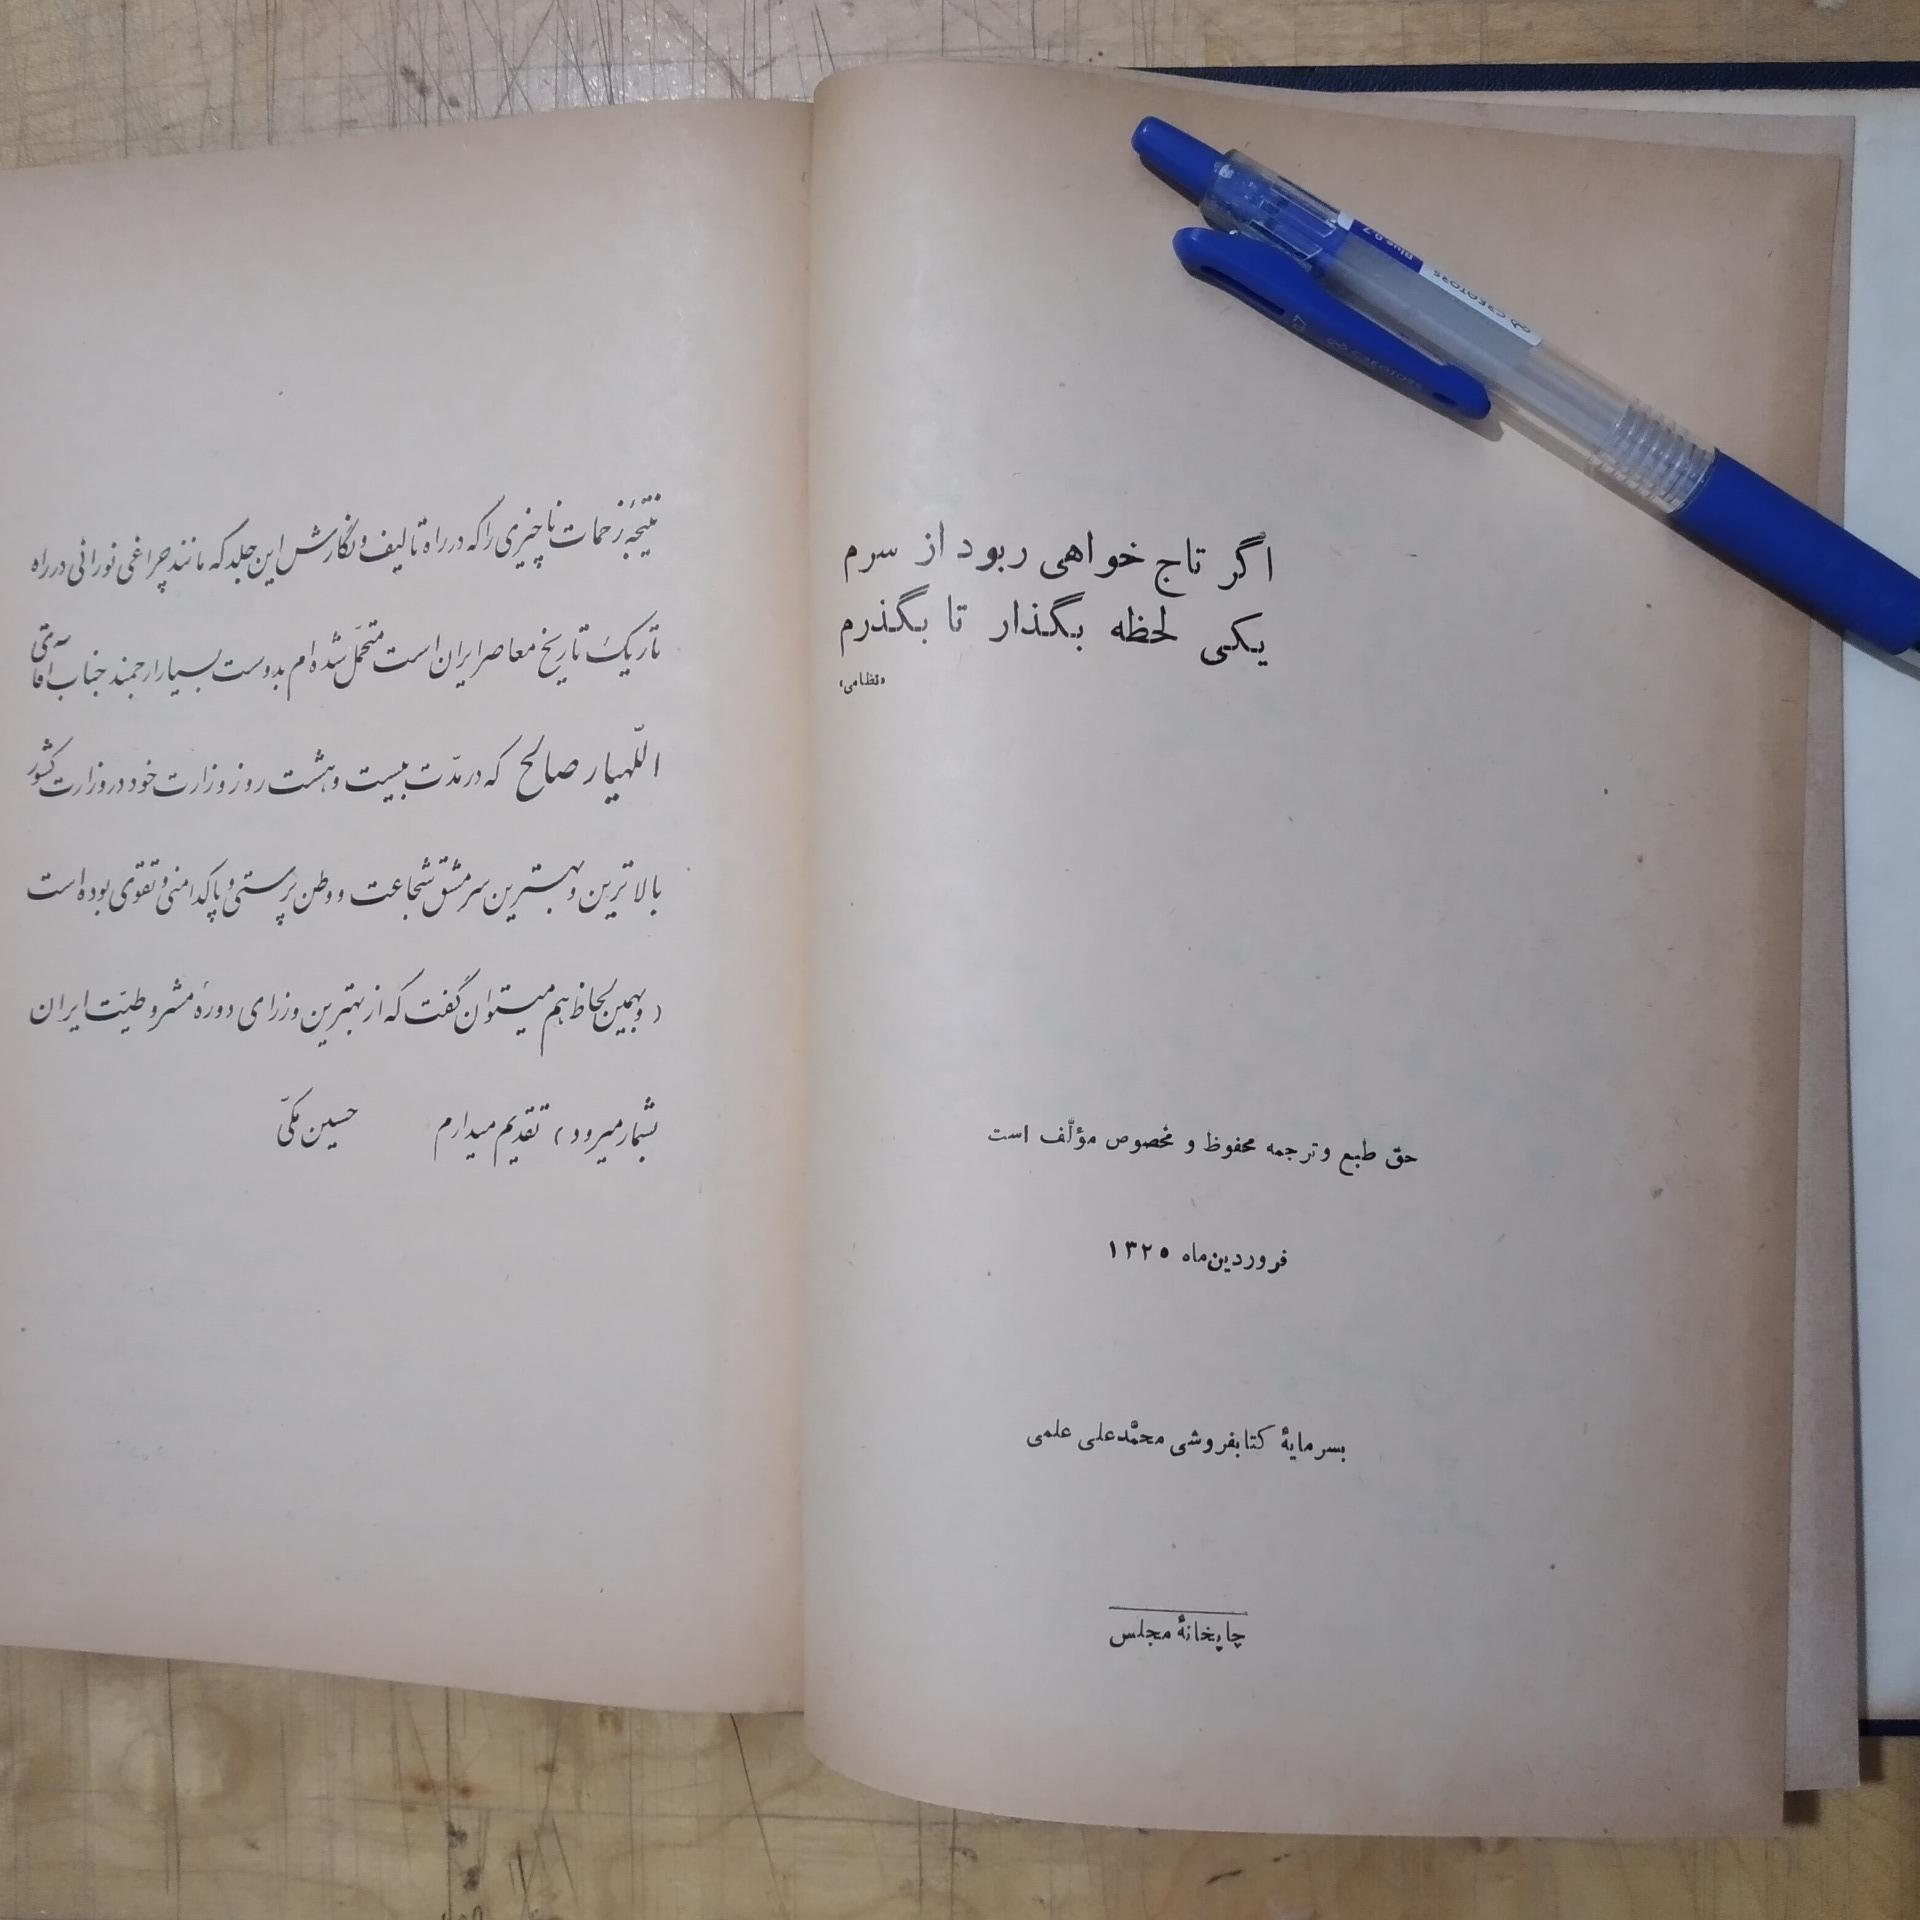 اگر تاج خواهی ربود از سرم
یکی لحظه بگذار تا بگذرم
«نظامی»
حق طبع و ترجمه محفوظ و مخصوص مؤلّف است
فروردین‌ماه ۱۳۲۵
بسرمایهٔ کتابفروشی محمّدعلی علمی
چاپخانهٔ مجلس
نتیجهٔ زحمات ناچیزی را که در راه تألیف و نگارش این جلد که مانند چراغی نورانی در راه
تاریک تاریخ معاصر ایران است متحمّل شده‌ام بدوست بسیار ارجمند جناب آقای
اللّهیار صالح که در مدّت بیست و هشت روز وزارت خود در وزارت کشور
بالاترین و بهترین سرمشق شجاعت و وطن پرستی و پاکدامنی و تقوی بوده است
( و بهمین لحاظ هم میتوان گفت که از بهترین وزرای دورهٔ مشروطیّت ایران
بشمار میرود ) تقدیم میدارم حسین مکّی
CREATORS
Blue 0.7
CREATORS
0.7